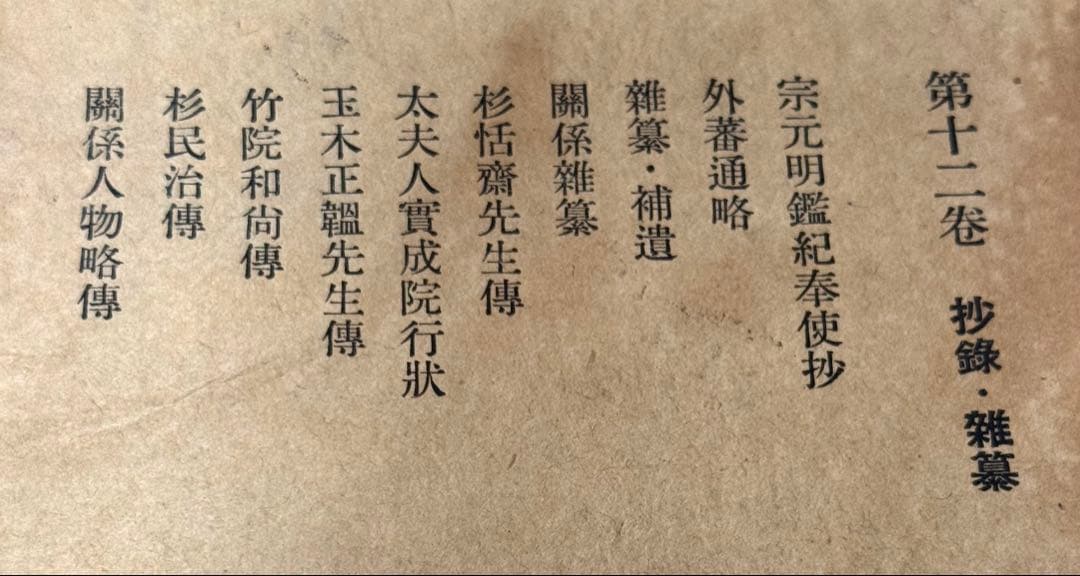 第十二卷 抄錄・雜纂
宗元明鑑紀奉使抄
外蕃通略
雜纂・補遺
關係雜纂
杉恬齋先生傳
太夫人實成院行狀
玉木正韞先生傳
竹院和尙傳
杉民治傳
關係人物略傳